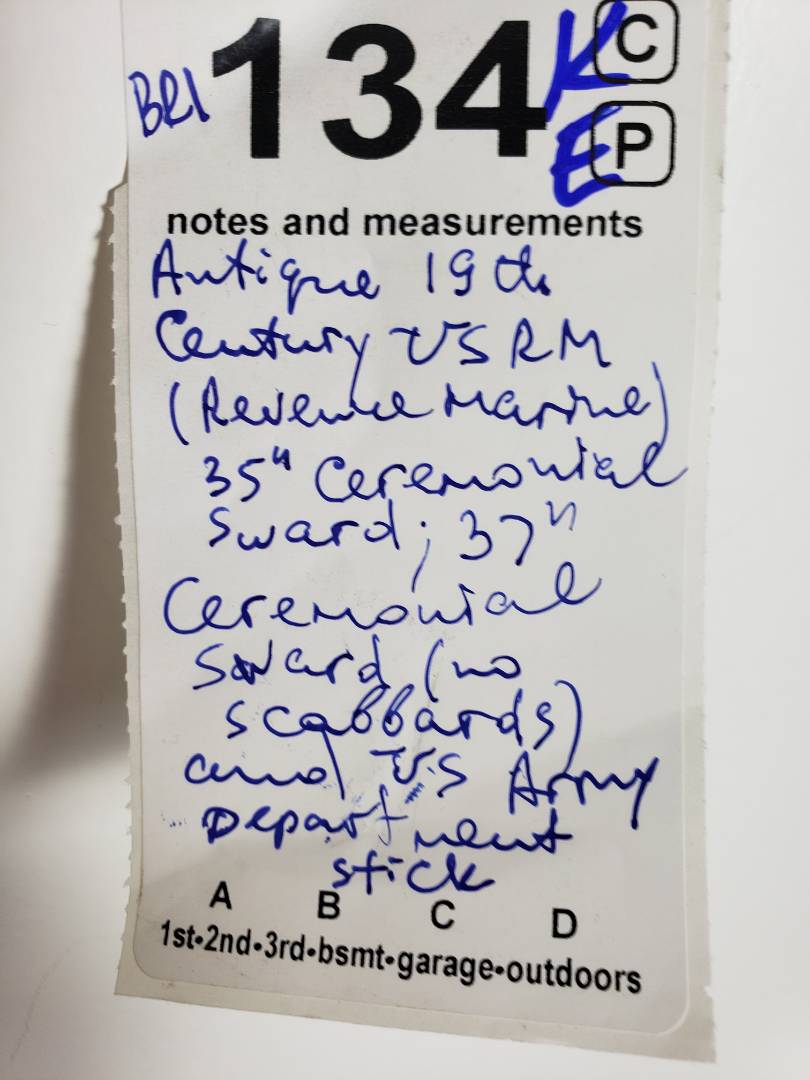 BR1 134 K C
E P
notes and measurements
Antique 19th
Century US RM
(Revenue Marine)
35" Ceremonial
Sward; 37"
Ceremonial
Sward (no
scabbards)
and U.S Army
Department
stick
A B C D
1st•2nd•3rd•bsmt•garage•outdoors